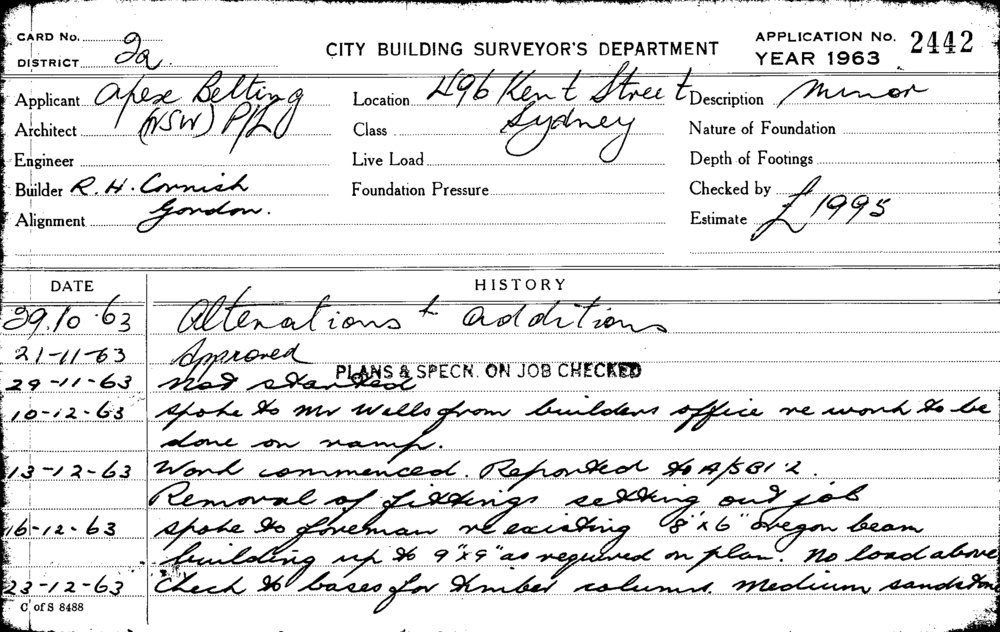 CARD No. 2a
DISTRICT
CITY BUILDING SURVEYOR'S DEPARTMENT
APPLICATION No. 2442
YEAR 1963
Applicant Apex Belting
Location 496 Kent Street
Description Minor
Architect (NSW) P/L
Class Sydney
Nature of Foundation
Engineer
Live Load
Depth of Footings
Builder R. H. Cornish
Foundation Pressure
Checked by
Alignment Gordon.
Estimate £1995
DATE
HISTORY
29.10.63 Alterations & additions
21-11-63 Approved
PLANS & SPECN. ON JOB CHECKED
29-11-63 Not started
10-12-63 spoke to Mr Wells from builders office re work to be
done on ramp.
13-12-63 Work commenced. Reported to A/SBI 2.
Removal of fittings setting out job
16-12-63 spoke to foreman re existing 8"x6" oregon beam
building up to 9"x9" as required on plan. No load above
23-12-63 Check to bases for timber columns. Medium sandstone
C of S 8488